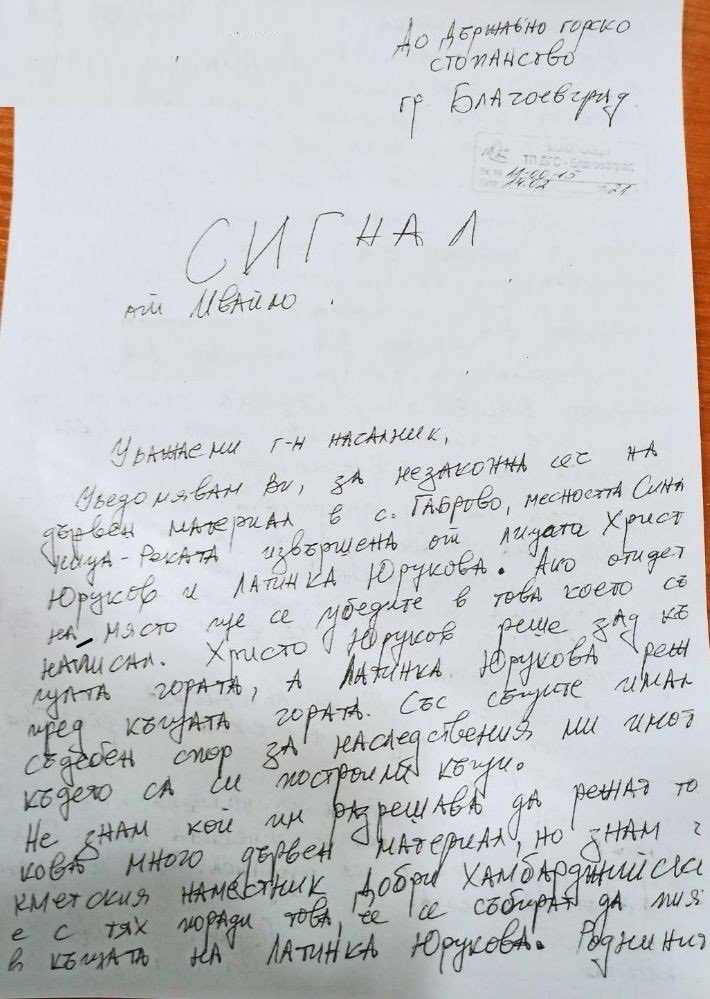 До Държавно горско
стопанство
гр. Благоевград.
ТП ДГС - Благоевград
СИГНАЛ
от Ивайло
Уважаеми г-н насалник,
Уведомявам Ви, за незаконна сес на
дървен материал в с. Габрово, месността Сина
ница-Реката извършена от лицата Христ
Юруков и Латинка Юрукова. Ако отидет
на място ще се убедите в това което съ
написал. Христо Юруков реше зад къ
щата гората, а Латинка Юрукова реш
пред къщата гората. Със същите имам
съдебен спор за наследствения ми имот
където са си построили къщи.
Не знам кой им разрешава да решат то
кова много дървен материал, но знам ч
кметския наместник Добри Хамбарджийски
е с тях поради това, че се събират да пия
в къщата на Латинка Юрукова. Роднини